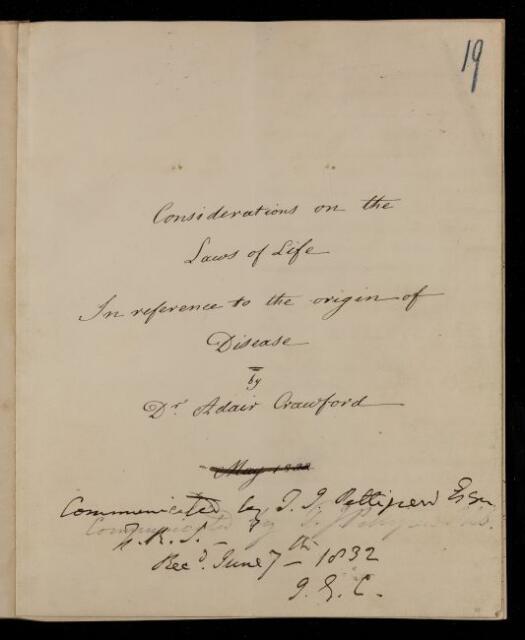 19
Considerations on the
Laws of Life
In reference to the origin of
Disease
by
Dr Adair Crawford
May 1832
Communicated by T. J. Pettigrew Esqr
F. R. S. _
Recd. June 7th _ 1832
J. G. C.